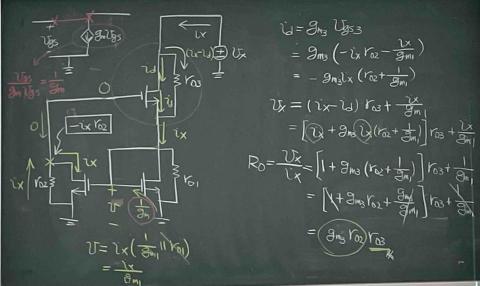 Vgs
gmVgs
Vgs/gmVgs = 1/gm
0
0
-ix ro2
ix
ro2
ix
id
id
ix
ix
(ix-id)
ro3
Vx
ro1
1/gm1
v
v = ix(1/gm1 || ro1)
= ix/gm1
id = gm3 Vgs3
= gm3(-ix ro2 - ix/gm1)
= -gm3 ix(ro2 + 1/gm1)
Vx = (ix-id) ro3 + ix/gm1
= [ix + gm3 ix(ro2 + 1/gm1)] ro3 + ix/gm1
Ro = Vx/ix = [1 + gm3(ro2 + 1/gm1)] ro3 + 1/gm1
= [1 + gm3 ro2 + gm3/gm1] ro3 + 1/gm1
= gm3 ro2 ro3